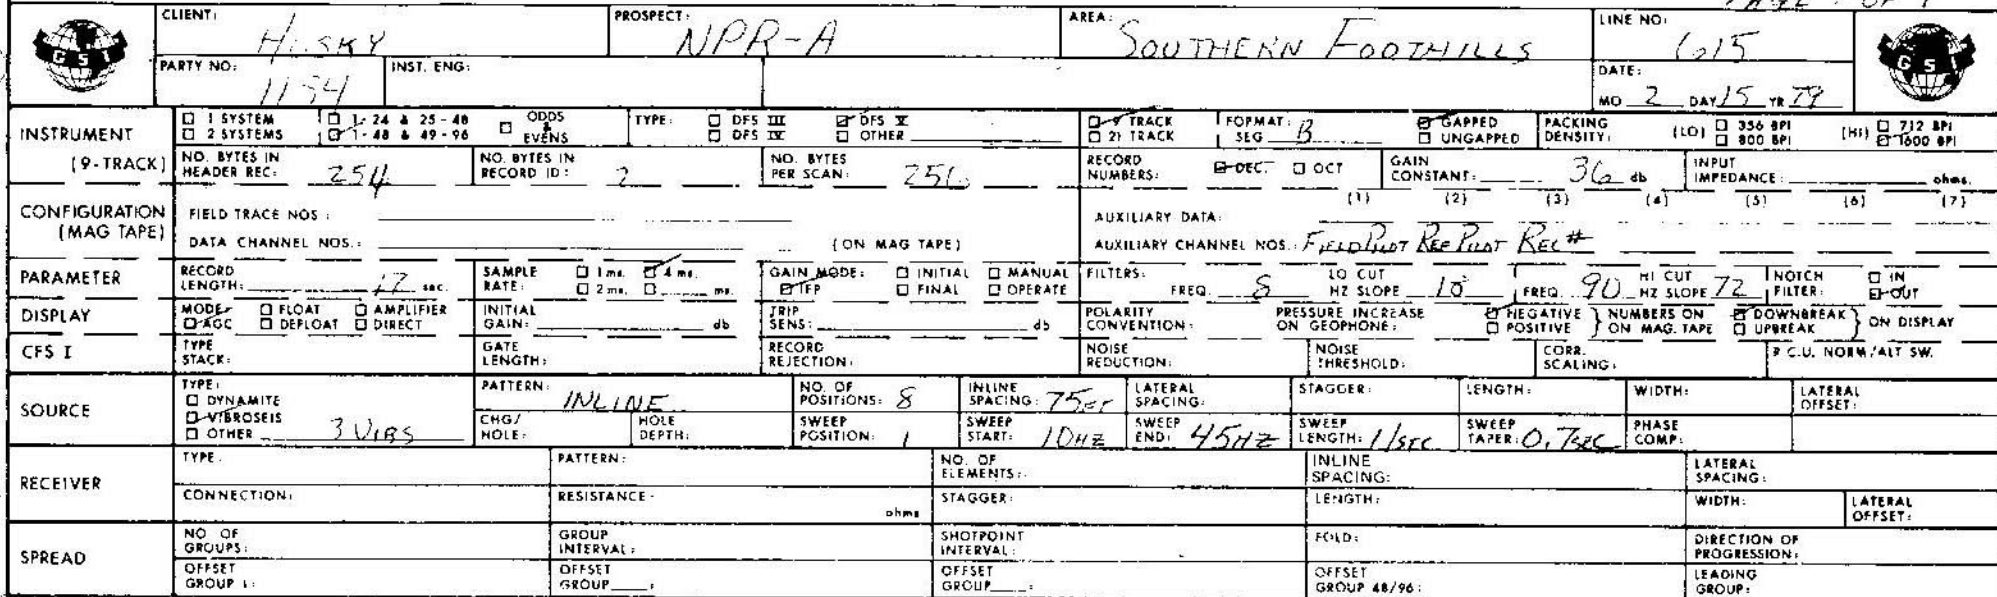 PAGE 1 OF 1
CLIENT: HUSKY PROSPECT: NPR-A AREA: SOUTHERN FOOTHILLS LINE NO: 615
GSI
PARTY NO: 1184 INST. ENG: DATE: MO 2 DAY 15 YR 79
GSI
INSTRUMENT (9-TRACK)
1 SYSTEM 1-24 & 25-48 ODDS & EVENS TYPE: DFS III DFS V 9 TRACK FORMAT: GAPPED PACKING DENSITY: (LO) 356 BPI (HI) 712 BPI
2 SYSTEMS 1-48 & 49-96 DFS IV OTHER 21 TRACK SEG B UNGAPPED 800 BPI 1600 BPI
NO. BYTES IN HEADER REC: 254 NO. BYTES IN RECORD ID: 2 NO. BYTES PER SCAN: 256 RECORD NUMBERS: DEC. OCT GAIN CONSTANT: 36 db INPUT IMPEDANCE: ohms.
CONFIGURATION (MAG TAPE)
FIELD TRACE NOS: AUXILIARY DATA: (1) (2) (3) (4) (5) (6) (7)
DATA CHANNEL NOS.: (ON MAG TAPE) AUXILIARY CHANNEL NOS.: FIELD PILOT REF PILOT REC#
PARAMETER RECORD LENGTH: 17 sec. SAMPLE RATE: 1 ms. 4 ms. 2 ms. ms. GAIN MODE: INITIAL MANUAL IFP FINAL OPERATE FILTERS: FREQ. 8 LO CUT HZ SLOPE 18 FREQ. 90 HI CUT HZ SLOPE 72 NOTCH FILTER: IN OUT
DISPLAY MODE: FLOAT AMPLIFIER AGC DEFLOAT DIRECT INITIAL GAIN: db TRIP SENS: db POLARITY CONVENTION: PRESSURE INCREASE ON GEOPHONE: NEGATIVE POSITIVE } NUMBERS ON MAG. TAPE DOWNBREAK UPBREAK } ON DISPLAY
CFS I TYPE STACK: GATE LENGTH: RECORD REJECTION: NOISE REDUCTION: NOISE THRESHOLD: CORR. SCALING: R.C.U. NORM/ALT SW.
SOURCE TYPE: DYNAMITE VIBROSEIS OTHER 3 VIBS
PATTERN: INLINE NO. OF POSITIONS: 8 INLINE SPACING: 75FT LATERAL SPACING: STAGGER: LENGTH: WIDTH: LATERAL OFFSET:
CHG/HOLE: HOLE DEPTH: SWEEP POSITION: 1 SWEEP START: 10HZ SWEEP END: 45HZ SWEEP LENGTH: 11SEC SWEEP TAPER: 0.7SEC PHASE COMP:
RECEIVER TYPE: PATTERN: NO. OF ELEMENTS: INLINE SPACING: LATERAL SPACING:
CONNECTION: RESISTANCE: ohms STAGGER: LENGTH: WIDTH: LATERAL OFFSET:
SPREAD NO OF GROUPS: GROUP INTERVAL: SHOTPOINT INTERVAL: FOLD: DIRECTION OF PROGRESSION:
OFFSET GROUP 1: OFFSET GROUP ___: OFFSET GROUP ___: OFFSET GROUP 48/96: LEADING GROUP: